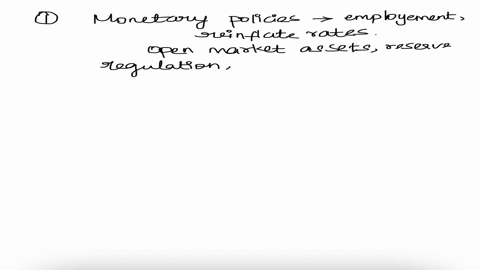 ① Monetary policies → employement,
reinflate rates.
open market assets, reserve
regulation,